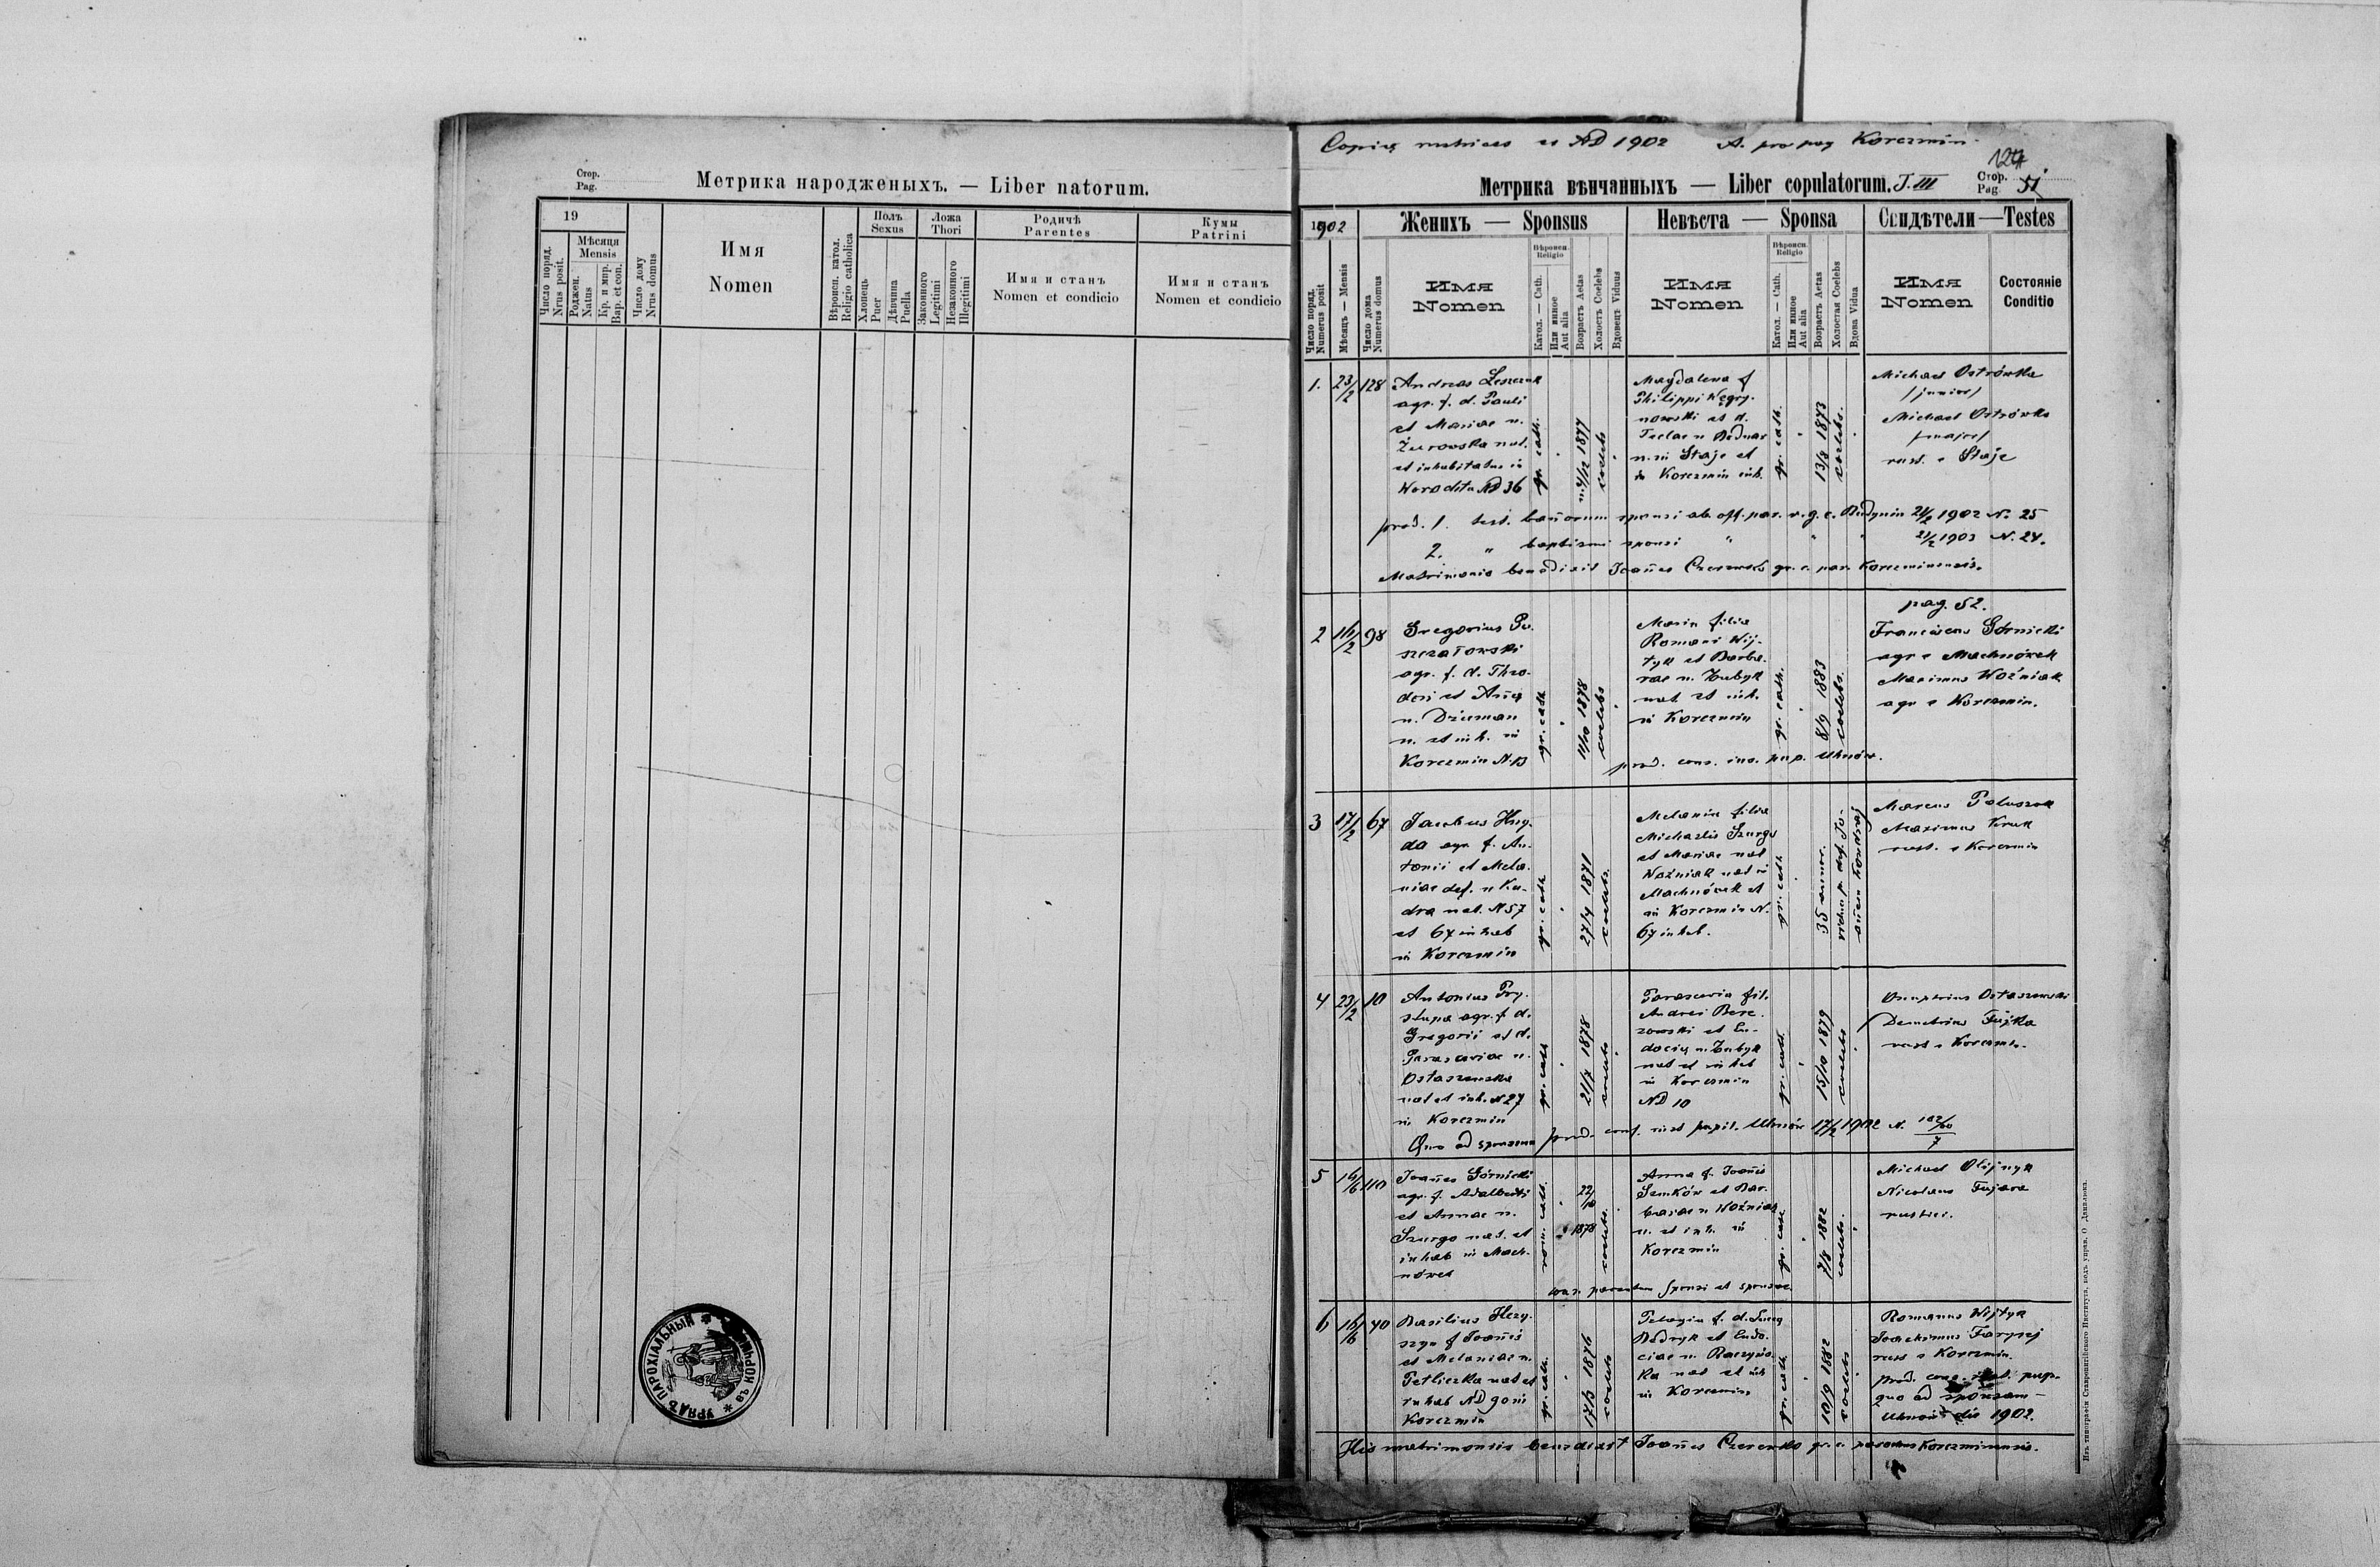 Стор.
Pag.
Метрика народженыхъ. — Liber natorum.
19
Число поряд.
Nrus posit.
Мѣсяця
Mensis
Роджен.
Natus
Кр. и мир.
Bap. et con.
Число дому
Nrus domus
Имя
Nomen
Вѣроисп. катол.
Religio catholica
Полъ
Sexus
Хлопець
Puer
Дѣвчина
Puella
Ложа
Thori
Законного
Legitimi
Незаконного
Illegitimi
Родичѣ
Parentes
Имя и станъ
Nomen et condicio
Кумы
Patrini
Имя и станъ
Nomen et condicio
УРЯДЪ ПАРОХІАЛЬНЫЙ
AD 1902 A. pro pag Korczmin
Метрика вѣнчанныхъ — Liber copulatorum. T. III
Стор.
Pag. 51
1902
Женихъ — Sponsus
Невѣста — Sponsa
Свидѣтели — Testes
Число поряд.
Numerus posit
Мѣсяцъ — Mensis
Число дома
Numerus domus
Имя
Nomen
Вѣроисп.
Religio
Катол. — Cath.
Или инное
Aut alia
Возрастъ Aetas
Холостъ Coelebs
Вдовецъ Viduus
Имя
Nomen
Вѣроисп.
Religio
Катол. — Cath.
Или инное
Aut alia
Возрастъ Aetas
Холостая Coelebs
Вдова Vidua
Имя
Nomen
Состояніе
Conditio
1. 23/2 128
Andreas Leszczuk
agr. f. d. Pauli
et Mariae n.
Żurowska nat.
et inhabitatus in
ND 36
gr. cath.
1877
coelebs
Magdalena f
Philippi Węgry-
nowski et d.
Teclae n Bednar
n. in Staje et
in Korczmin inh.
gr. cath.
13/8 1873
coelebs.
Michael Ostrówka
/junior/
Michael Ostrówka
/major/
rust. e Staje
prod. 1. test. bannorum sponsi ab off. par. r. g. c. Budynin 21/2 1902 N. 25
2. " baptismi sponsi " " " 21/2 1903 N. 24.
Matrimonio benedixit Joannes gr. c. par. Korczminensis.
pag. 52.
2 16/2 98
Gregorius Pu-
szczałowski
agr. f. d. Theo-
dori et Annae
n. Dziuman
n. et inh. in
Korczmin N. 13
gr. cath
11/10 1878
coelebs
Maria filia
Romani Wij-
tyk et Barba-
rae n. Zubyk
nat. et inh.
in Korczmin
gr. cath.
8/9 1883
coelebs.
Franciscus Górnicki
agr e Machnówek
Maximus Woźniak
agr e Korczmin.
prod. cons. pup. Uhnów.
3 17/2 67
Jacobus Hny-
da agr f. An-
tonii et Mela-
niae def. n Ku-
dra nat. N 57
et 67 inhab
in Korczmin
gr. cath
27/4 1871
coelebs.
Melania filia
Michaelis Szurgo
et Mariae nat
Woźniak nat in
Machnówek et
in Korczmin N.
67 inhab.
gr. cath
35 annor.
vidua p. def. Jo-
Marcus
Maximus Kruk
rust. e Korczmin
4 23/2 10
Antonius Pry-
stupa agr. f d.
Gregorii et d.
Parasceviae n.
Ostaszewska
nat et inh. N 27
in Korczmin
gr. cath
21/7 1878
coelebs
Parascevia fil.
Andrei Bere-
zowski et Eu-
dociae n. Zubyk
nat et inhab
in Korczmin
ND 10
gr. cath.
15/10 1879
coelebs
Ostaszewski
Demetrius Fujka
rust e Korczmin.
Quo ad sponsam prod. cons. iud. pupil. Uhnów 17/2 1902 N. 102/00
7
5 16/6 110
Joannes Górnicki
agr. f. Adalberti
et Annae n.
Szurgo nat. et
inhab in Mach-
nówek
rom. cath.
22/10
1878
coelebs.
Anna f. Joannis
Semków et Bar-
barae n Woźniak
n. et inh. in
Korczmin
gr. cath.
7/8 1882
coelebs.
Michael Olijnyk
Nicolaus Fujara
rustici.
cons. parentum sponsi et sponsae
6 16/6 40
Basilius Hery-
szyn f Joannis
et Melaniae n.
Petliczka nat et
inhab ND 90 in
Korczmin
gr. cath.
17/3 1876
coelebs
Pelagia f. d. Lucae
Bedryk et Eudo-
ciae n.
nat et inh
in Korczmin
gr. cath.
10/9 1882
coelebs
Romanus Wijtyk
Joachimus Farysej
rust e Korczmin.
prod. cons. iud. pup.
quo ad sponsam —
Uhnów dto 1902.
His matrimoniis benedixit Joannes gr. c. parochus Korczminensis.
Изъ типографіи Ставропигійского Института, подъ управ. О. Данилюка.